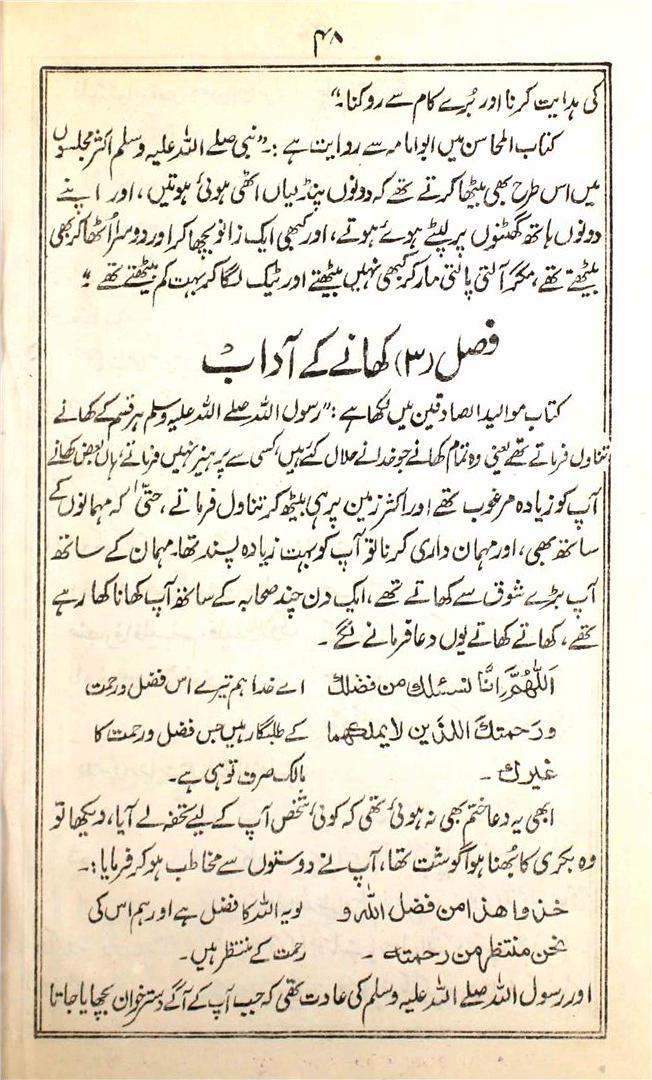 ۴۸
کی ہدایت کرنا اور بُرے کام سے روکنا۔"
کتاب المحاسن میں ابو امامہ سے روایت ہے :۔ "نبی صلے اللہ علیہ وسلم اکثر مجلسوں
میں اس طرح بھی بیٹھا کرتے تھے کہ دونوں پنڈلیاں اٹھی ہوئی ہوتیں، اور اپنے
دونوں ہاتھ گھٹنوں پر لپٹے ہوئے ہوتے، اور کبھی ایک زانو بچھا کر اور دوسرا اُٹھا کر بھی
بیٹھتے تھے، مگر آلتی پالتی مار کر کبھی نہیں بیٹھتے اور ٹیک لگا کر بہت کم بیٹھتے تھے۔"
فصل (۳) کھانے کے آداب
کتاب موالید الصادقین میں لکھا ہے :۔ "رسول اللہ صلے اللہ علیہ وسلم ہر قسم کے کھانے
تناول فرماتے تھے یعنی وہ تمام کھانے جو خدا نے حلال کئے ہیں، کسی سے پرہیز نہیں فرماتے، ہاں بعض کھانے
آپ کو زیادہ مرغوب تھے اور اکثر زمین پر ہی بیٹھ کر تناول فرماتے، حتیٰ کہ مہمانوں کے
ساتھ بھی، اور مہمان داری کرنا تو آپ کو بہت زیادہ پسند تھا۔ مہمان کے ساتھ
آپ بڑے شوق سے کھاتے تھے، ایک دن چند صحابہ کے ساتھ آپ کھانا کھا رہے
تھے، کھاتے کھاتے یوں دعا فرمانے لگے۔
اَللّٰھُمَّ اِنَّا نسئلك من فضلك اے خدا ہم تیرے اس فضل و رحمت
ورحمتك اللذین لا یملکھما کے طلبگار ہیں جس فضل و رحمت کا
غیرك ۔ مالک صرف تو ہی ہے۔
ابھی یہ دعا ختم بھی نہ ہوئی تھی کہ کوئی شخص آپ کے لیے تحفہ لے آیا، دیکھا تو
وہ بکری کا بُھنا ہوا گوشت تھا، آپ نے دوستوں سے مخاطب ہو کر فرمایا :۔
خذوا ھذا من فضل اللہ و لو یہ اللہ کا فضل ہے اور ہم اس کی
نحن منتظر من رحمته ۔ رحمت کے منتظر ہیں۔
اور رسول اللہ صلے اللہ علیہ وسلم کی عادت تھی کہ جب آپ کے آگے دسترخوان بچھایا جاتا